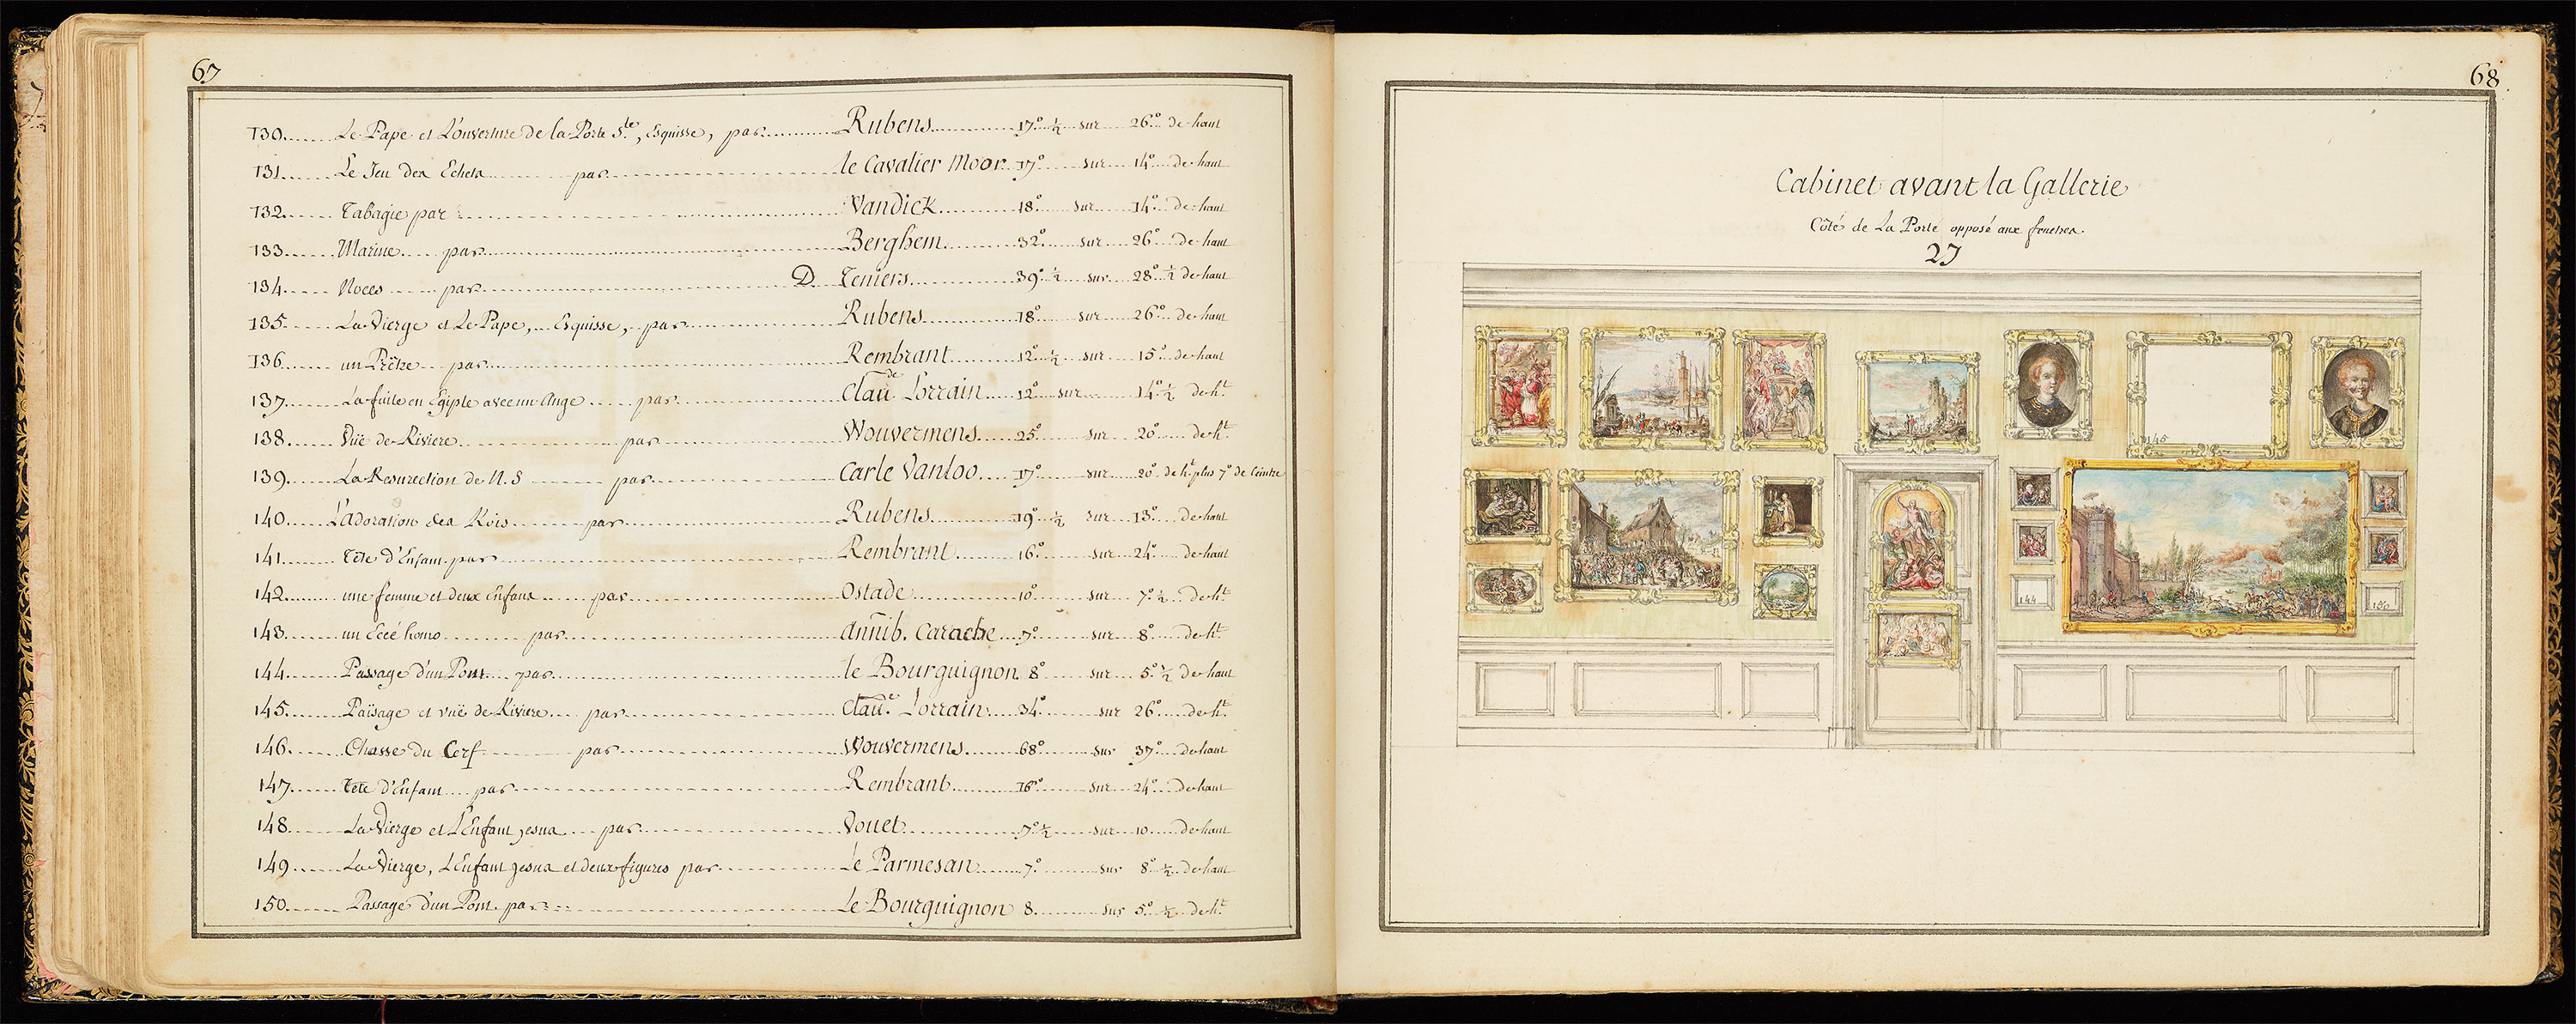 67
130 Le Pape et L'ouverture de la Porte S.te, Esquisse, par Rubens 17° ½ sur 26° de haut
131 Le Jeu des Echets par le Cavalier Moor 17° sur 14° de haut
132 Tabagie par Vandick 18° sur 14° de haut
133 Marine par Berghem 32° sur 26° de haut
134 Noces par D. Teniers 39° ½ sur 28° ½ de haut
135 La Vierge et Le Pape, Esquisse, par Rubens 18° sur 26° de haut
136 un Prêtre par Rembrant 12° ½ sur 15° de haut
137 La fuite en Egipte avec un Ange par Clau.de Lorrain 12° sur 14° ½ de h.t
138 Vüe de Riviere par Wouvermens 25° sur 20° de h.t
139 La Resurection de N.S par Carle Vanloo 17° sur 20° de h.t plus 7° de Ceintre
140 L'adoration des Rois par Rubens 19° ½ sur 13° de haut
141 Tête d'Enfant par Rembrant 16° sur 24° de haut
142 une femme et deux Enfans par Ostade 10° sur 7° ½ de h.t
143 un Eccé homo par Annib. Carache 7° sur 8° de h.t
144 Passage d'un Pont par le Bourguignon 8° sur 5° ½ de haut
145 Païsage et vuë de Riviere par Clau.e Lorrain 34° sur 26° de h.t
146 Chasse du Cerf par Wouvermens 68° sur 37° de haut
147 Tête d'Enfant par Rembrant 16° sur 24° de haut
148 La Vierge et L'Enfant jesus par Vouet 7° ½ sur 10 de haut
149 La Vierge, L'Enfant jesus et deux figures par Le Parmesan 7° sur 8° ½ de haut
150 Passage d'un Pont par Le Bourguignon 8 sur 5° ½ de h.t
68
Cabinet avant la Gallerie
Côté de La Porte opposé aux fenetres.
27
145
144
150